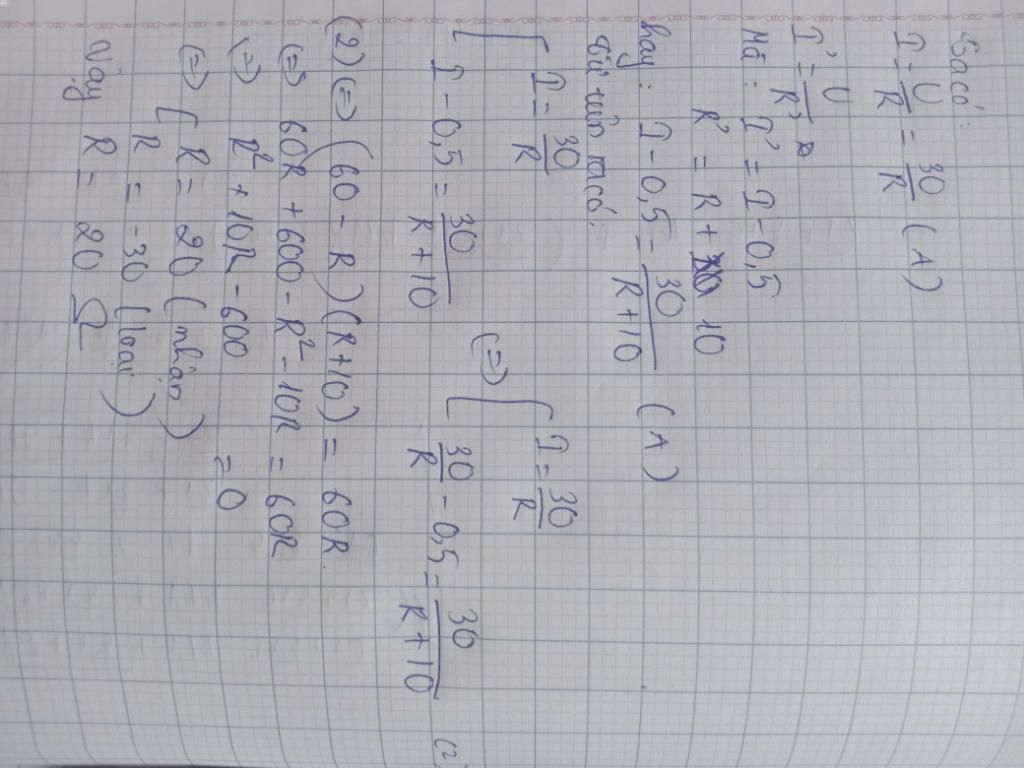 Ta có:
I = U/R = 30/R (A)
I' = U/R'
Mà: I' = I - 0,5
R' = R + 10
hay: I - 0,5 = 30/(R + 10) (A)
Từ trên ta có:
{ I = 30/R (=) { I = 30/R
{ I - 0,5 = 30/(R + 10) { 30/R - 0,5 = 30/(R + 10) (2)
(2) (=) (60 - R)(R + 10) = 60R
(=) 60R + 600 - R² - 10R = 60R
(=) R² + 10R - 600 = 0
(=) [ R = 20 (nhận)
R = -30 (loại)
Vậy R = 20 Ω